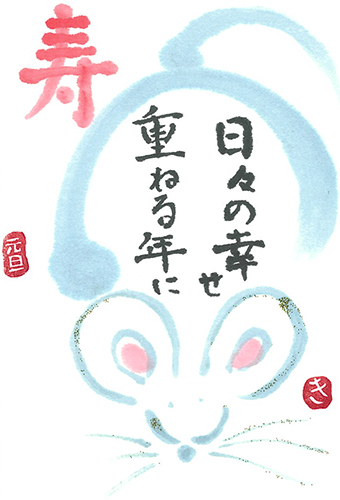 寿
日々の幸せ
重ねる年に
元旦
き